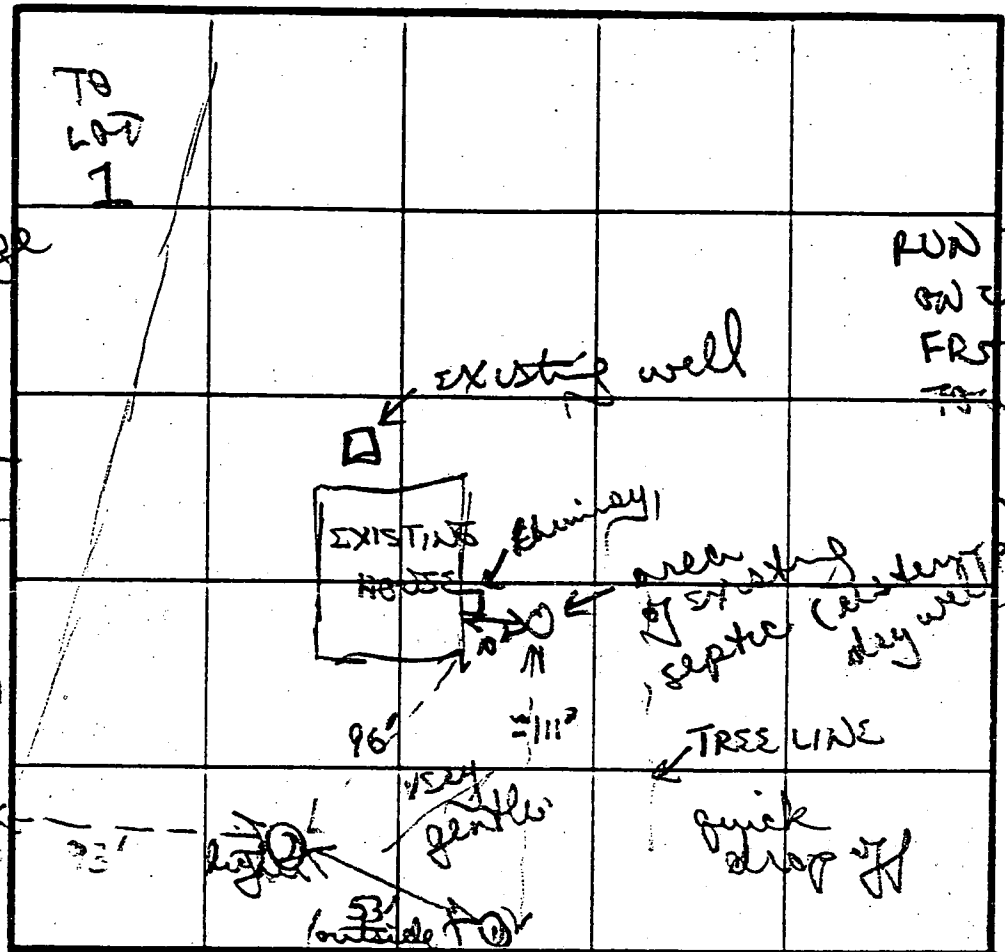 TO
LOT
1
RUN
FRS
existing well
EXISTING
HOUSE
chimney
area
of existing
septic
dry well
10'
96'
≈111'
TREE LINE
gentle
quick
drop off
93'
high
53'
outside